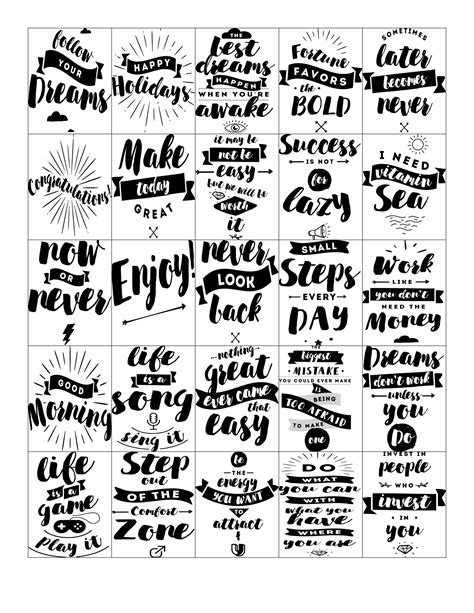 follow
YOUR
Dreams
HAPPY
Holidays
THE
best
dreams
HAPPEN
WHEN YOU'RE
awake
Fortune
FAVORS
the
BOLD
SOMETIMES
later
becomes
never
Congratulations!
Make
today
GREAT
it may be
not be
easy
but we will be
worth
it
Success
IS NOT
for
lazy
I NEED
vitamin
Sea
now
OR
never
Enjoy!
never
LOOK
back
SMALL
Steps
EVERY
DAY
Work
LIKE
you don't
NEED THE
Money
GOOD
Morning
life
is a
song
sing it
nothing
great
ever came
that
easy
THE
biggest
MISTAKE
YOU COULD EVER MAKE
IS
BEING
TOO AFRAID
TO MAKE
one
Dreams
don't work
unless
you
Do
life
is a
game
play it
Step
out
OF THE
Comfort
Zone
be
THE
energy
YOU WANT
to
attract
DO
what
you can
WITH
what you
have
WHERE
you are
INVEST IN
people
WHO
invest
IN
you